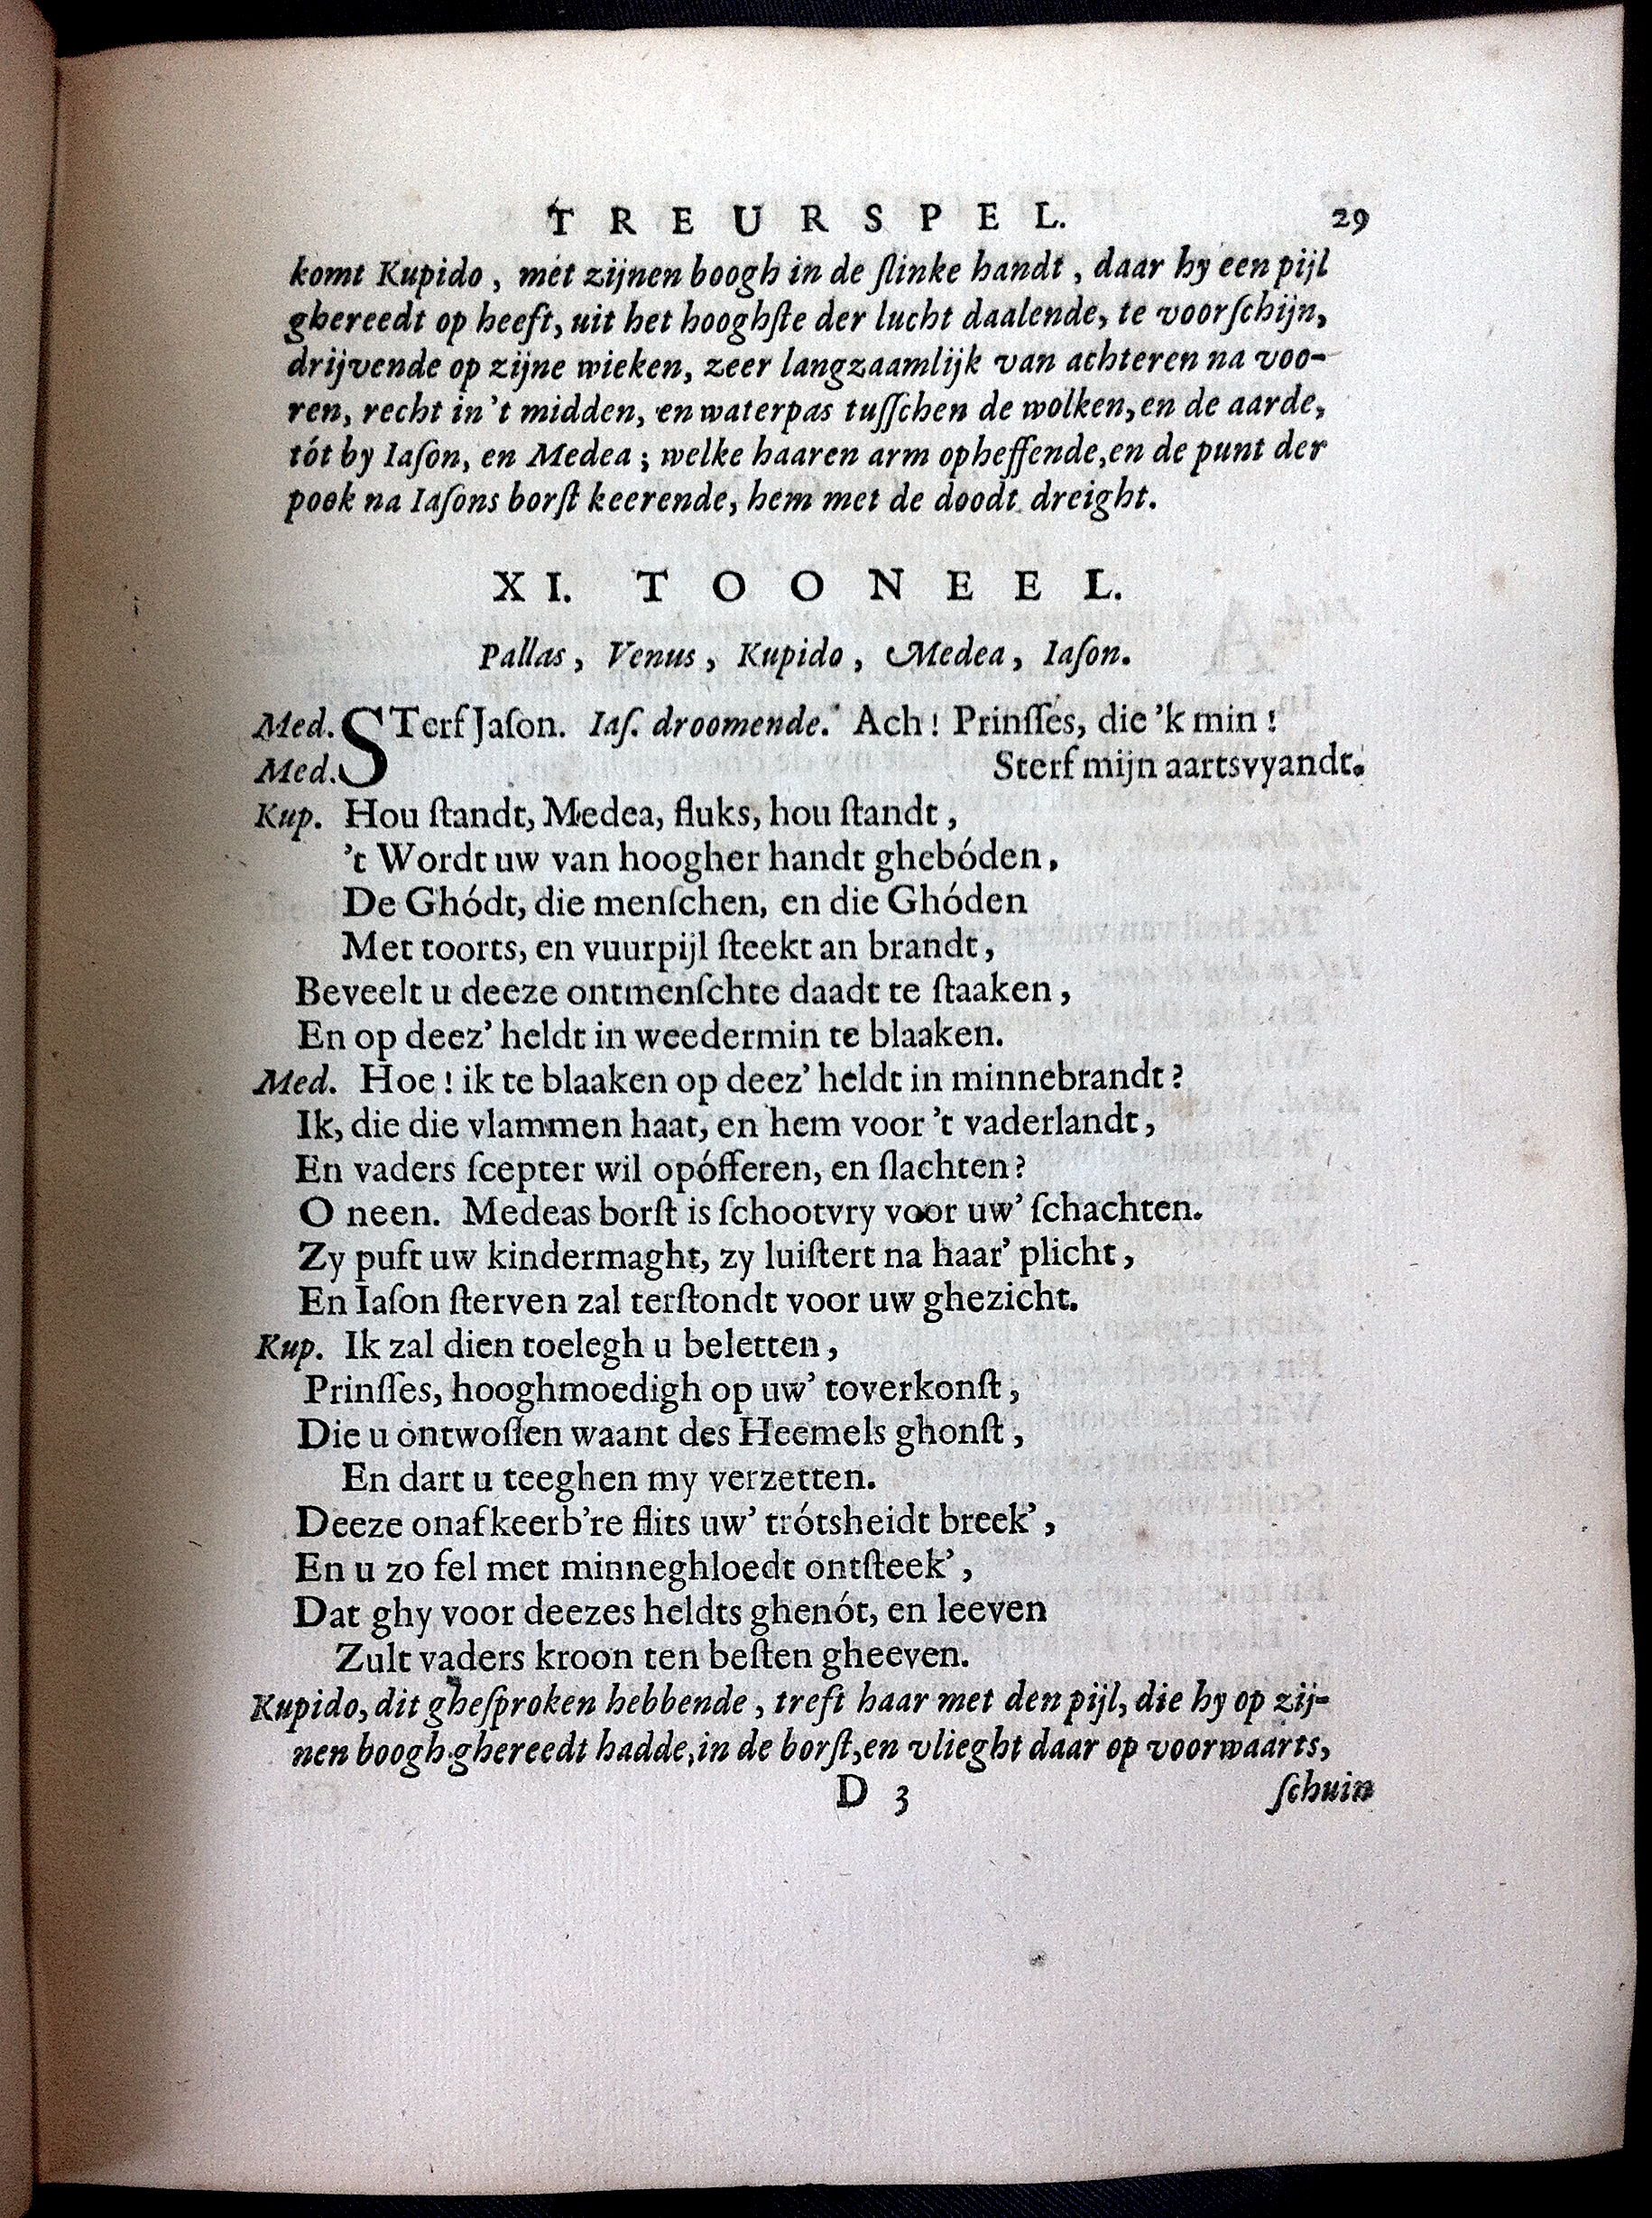 TREURSPEL. 29
komt Kupido, met zijnen boogh in de ſlinke handt, daar hy een pijl
ghereedt op heeft, uit het hooghſte der lucht daalende, te voorſchijn,
drijvende op zijne wieken, zeer langzaamlijk van achteren na voo-
ren, recht in 't midden, en waterpas tuſſchen de wolken, en de aarde,
tót by Iaſon, en Medea; welke haaren arm opheffende, en de punt der
pook na Iaſons borſt keerende, hem met de doodt dreight.
XI. TOONEEL.
Pallas, Venus, Kupido, Medea, Iaſon.
Med. STerf Jaſon. Iaſ. droomende. Ach! Prinſſes, die 'k min!
Med. Sterf mijn aartsvyandt.
Kup. Hou ſtandt, Medea, fluks, hou ſtandt,
't Wordt uw van hoogher handt ghebóden,
De Ghódt, die menſchen, en die Ghóden
Met toorts, en vuurpijl ſteekt an brandt,
Beveelt u deeze ontmenſchte daadt te ſtaaken,
En op deez' heldt in weedermin te blaaken.
Med. Hoe! ik te blaaken op deez' heldt in minnebrandt?
Ik, die die vlammen haat, en hem voor 't vaderlandt,
En vaders ſcepter wil opófferen, en ſlachten?
O neen. Medeas borſt is ſchootvry voor uw' ſchachten.
Zy puft uw kindermaght, zy luiſtert na haar' plicht,
En Iaſon ſterven zal terſtondt voor uw ghezicht.
Kup. Ik zal dien toelegh u beletten,
Prinſſes, hooghmoedigh op uw' toverkonſt,
Die u ontwoſſen waant des Heemels ghonſt,
En dart u teeghen my verzetten.
Deeze onafkeerb're flits uw' trótsheidt breek',
En u zo fel met minneghloedt ontſteek',
Dat ghy voor deezes heldts ghenót, en leeven
Zult vaders kroon ten beſten gheeven.
Kupido, dit gheſproken hebbende, treft haar met den pijl, die hy op zij-
nen boogh ghereedt hadde, in de borſt, en vlieght daar op voorwaarts,
D 3 ſchuin